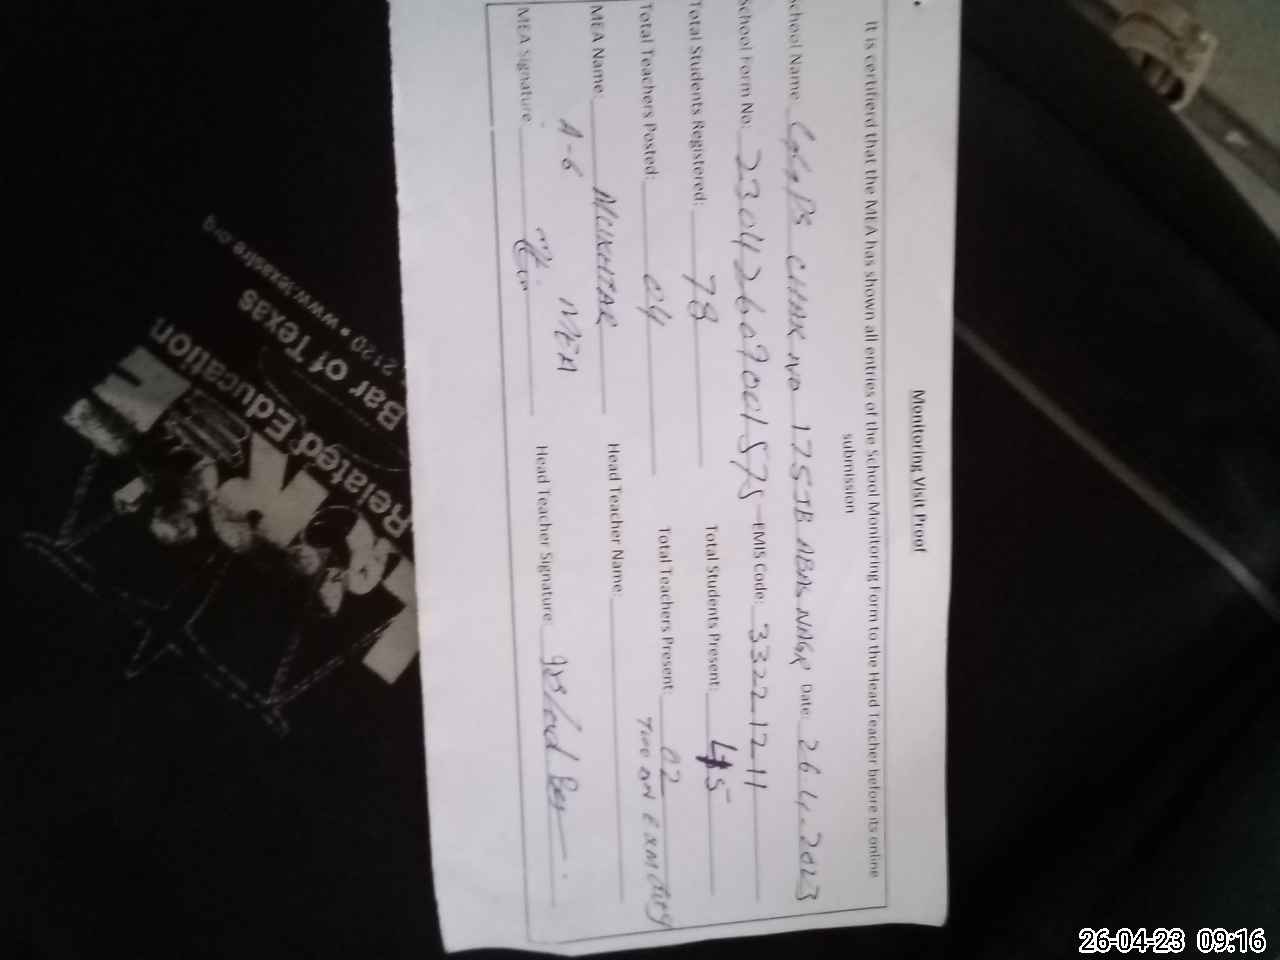 Monitoring Visit Proof
It is certifierd that the MEA has shown all entries of the School Monitoring Form to the Head Teacher before its online
submission
School Name GGPS CHAK No 175JB ABAS NAGR Date: 26.4.2023
School Form No: 23042609001575 EMIS Code: 33221211
Total Students Registered: 78 Total Students Present: 45
Total Teachers Posted: 04 Total Teachers Present: 02
Two on Exam duty
MEA Name: MUKHTAR Head Teacher Name:
A-6 MEA
MEA Signature Head Teacher Signature:
Related Education
Bar of Texas
2120 • www.texaslre.org
26-04-23 09:16